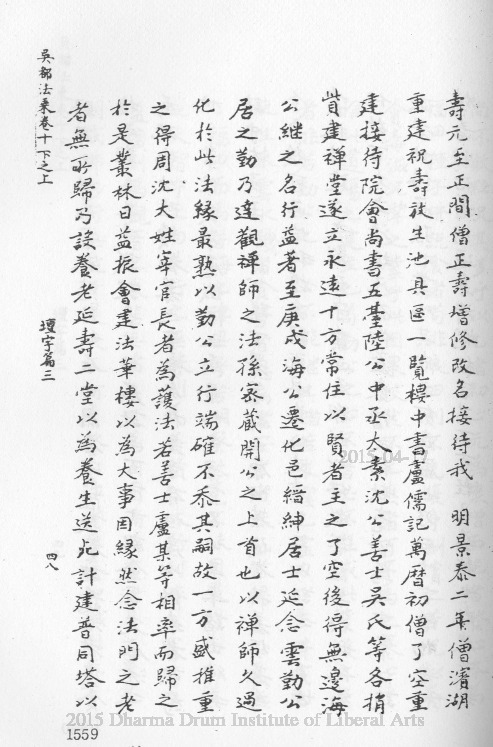 壽元至正間僧正壽增修改名接待我　明景泰二年僧濱湖
重建祝壽放生池具區一覽樓中書盧儒記萬曆初僧了空重
建接待院會尚書五臺陸公中丞大素沈公善士吳氏等各捐
貲建禪堂遂立永遠十方常住以賢者主之了空後得無邊海
公繼之名行益著至庚戌海公遷化邑縉紳居士延念雲勤公
居之勤乃達觀禪師之法孫密藏開公之上首也以禪師久過
化於此法緣最熟以勤公立行端確不忝其嗣故一方盛推重
之得周沈大姓宰官長者為護法若善士盧某等相率而歸之
於是叢林日益振會建法華樓以為大事因緣然念法門之老
者無所歸乃設養老延壽二堂以為養生送死計建普同塔以
吳都法乘卷十下之上
壇宇篇三
四八
2015-04-17
2015 Dharma Drum Institute of Liberal Arts
1559